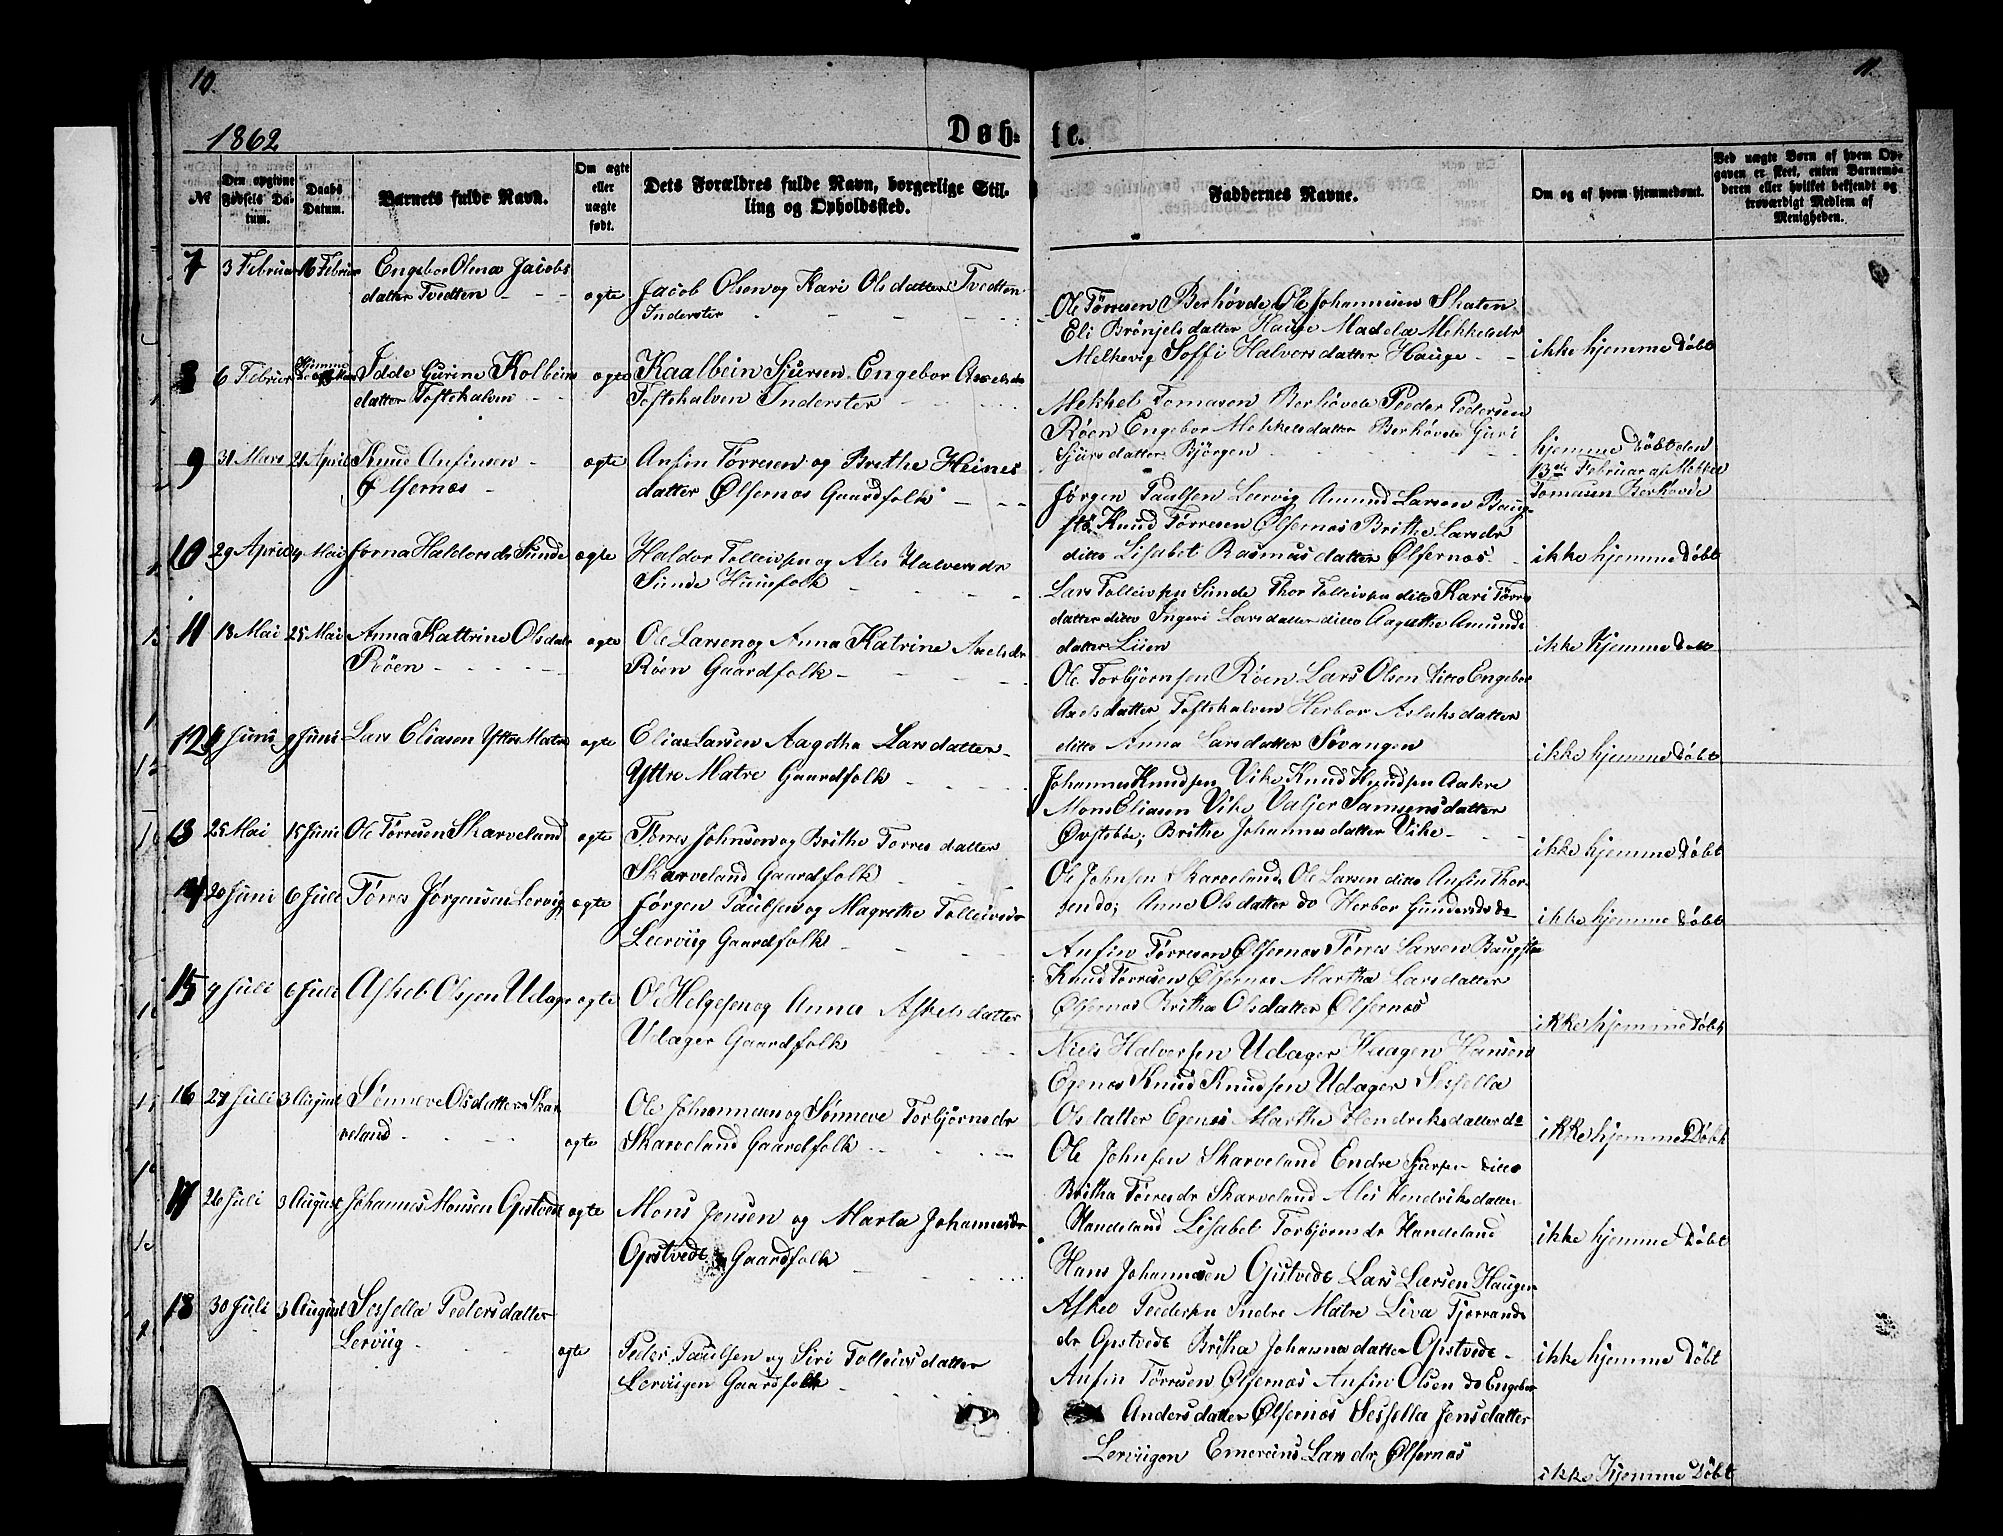 10.
11.
1862
Døb-
te.
№
Den opgivne Fødsels Datum.
Daabs Datum.
Barnets fulde Navn.
Om ægte eller uægte født.
Dets Forældres fulde Navn, borgerlige Stilling og Opholdssted.
Faddernes Navne.
Om og af hvem hjemmedøbt.
Ved uægte Børn af hvem Opgaven er skeet, enten Barnemoderen eller hvilket bekjendt og troværdigt Medlem af Menigheden.
7 3 Februar 16 Februar Engebor Olena Jacobs
datter Tvedten
ægte
Jacob Olsen og Kari Olsdatter Tvedten
Inderster
Ole Tørresen Berhøvde Ole Johannesen Skaten
Eli Brønjelsdatter Hauge Madela Mekkelsdr
Melkevig Soffi Halversdatter Hauge
ikke hjemme Døbt
8 6 Februar Hjemme
Idde Gurine Kolbeins
datter Toftehalven
ægte
Kaalbein Sjursen Engebor Axelsdr
Toftehalven Inderster
Mekkel Tomasen Berhøvde Peder Pedersen
Røen Engebor Mekkelsdatter Berhøvde Guri
Sjursdatter Bjørgen
hjemme Døbt den
13de Februar af Mekkel
Tomasen Berhøvde
9 31 Mars 21 April Knud Anfinsen
Ølfernæs
ægte
Anfin Tørresen og Brithe Heines
datter Ølfernæs Gaardfolk
Jørgen Paulsen Lervig Amund Larsen Baug
stø Knud Tørresen Ølfernæs Brithe Larsdr
ditto Lisabet Rasmusdatter Ølfernæs
ikke hjemme Døbt
10 29 April 4 Mai Jorna Haldorsdr Sunde
ægte
Haldor Tolleivsen og Ales Halversdr
Sunde Huusfolk
Lars Tolleivsen Sunde Thor Tolleivsen ditto Kari Tørres
datter ditto Ingeri Larsdatter ditto Aagathe Amunds
datter Liien
ikke hjemme Døbt
11 13 Mai 25 Mai Anna Kattrine Olsdatr
Røen
ægte
Ole Larsen og Anna Katrine Axelsdr
Røen Gaardfolk
Ole Torbjørnsen Røen Lars Olsen ditto Engebor
Axelsdatter Toftehalven Herbor Aslaksdatter
ditto Anna Larsdatter Søvangen
ikke hjemme Døbt
12 4 Juni 9 Juni Lars Eliasen Yttre Matre
ægte
Elias Larsen Aagotha Larsdatter
Yttre Matre Gaardfolk
Johannes Knudsen Vike Knud Knudsen Aakre
Mons Eliasen Vike Valjer Samsonsdatter
Øvstebøe, Brithe Johannesdatter Vike
ikke hjemme Døbt
13 25 Mai 15 Juni Ole Tørresen Skarveland
ægte
Tørres Johnsen og Brithe Torresdatter
Skarveland Gaardfolk
Ole Johnsen Skarveland Ole Larsen ditto Anfin Thor
sen do, Anne Olsdatter do Herbor Gundersdr do
ikke hjemme Døbt
14 20 Juni 6 Juli Tørres Jørgensen Lervig
ægte
Jørgen Paulsen og Magrethe Tolleivsdr
Leerviig Gaardfolk
Anfin Tørresen Ølfernæs Tørres Larsen Baugstø
Knud Tørresen Ølfernæs Martha Larsdatter
Ølfernæs Britha Olsdatter Ølfernæs
ikke hjemme Døbt
15 4 Juli 6 Juli Askel Olsen Udager
ægte
Ole Helgesen og Anna Askelsdatter
Udager Gaardfolk
Niels Halversen Udager Haagen Hansen
Egenes Knud Knudsen Udager Sessella
Olsdatter Egenes Marthe Hendriksdatter do
ikke hjemme Døbt
16 27 Juli 3 August Sønneve Olsdatter Skar
veland
ægte
Ole Johannesen og Sønneve Torbjørnsdr
Skarveland Gaardfolk
Ole Johnsen Skarveland Endre Sjursen ditto
Britha Tørresdr Skarveland Ales Hendriksdatter
Handeland Lisabet Torbjørnsdr Handeland
ikke hjemme Døbt
17 26 Juli 3 August Johannes Monsen Opstvedt
ægte
Mons Jensen og Marta Johannesdr
Opstvedt Gaardfolk
Hans Johannesen Opstvedt Lars Larsen Haugen
Askel Pedersen Indre Matre Liva Tjerrands
dr Opstvedt Britha Johannesdatter Opstvedt
ikke hjemme Døbt
18 30 Juli 3 August Sessella Pedersdatter
Lerviig
ægte
Peder Paulsen og Siri Tolleivsdatter
Lerviigen Gaardfolk
Anfin Tørresen Ølfernæs Anfin Olsen do Engebor
Andersdatter Ølfernæs Sessella Jensdatter
Lerviigen Emerens Larsdr Ølfernæs
ikke Hjemme Døbt